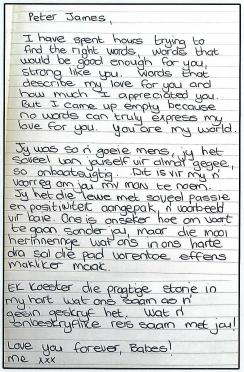 Peter James,
I have spent hours trying to
find the right words, words that
would be good enough for you,
strong like you. Words that
describe my love for you and
how much I appreciated you.
But I came up empty because
no words can truly express my
love for you. You are my world.
Jy was so n' goeie mens, jy het
soveel van jouself vir almal gegee,
so onbaatsugtig. Dit is vir my n'
voorreg om jou my man te noem.
Jy het die lewe met soveel passie
en positiwiteit aangepak, n' voorbeeld
vir baie. Ons is onseker hoe om voort
te gaan sonder jou, maar die mooi
herinneringe wat ons in ons harte
dra sal die pad vorentoe effens
makliker maak.
Ek koester die pragtige storie in
my hart wat ons saam as n'
gesin geskryf het. Wat n'
onbeskryflike reis saam met jou!
Love you forever, Babes!
Me xxx